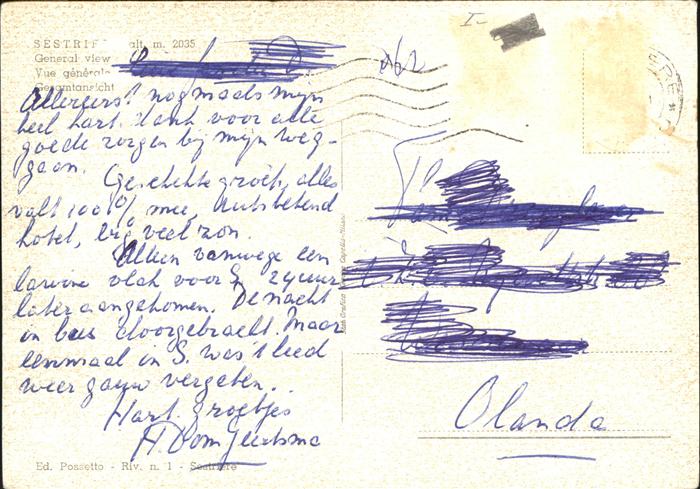 SESTRIE alt. m. 2035
General view
Vue générale
Gesamtansicht
Allereerst nogmaals mijn
heel hart. dank voor alle
goede zorgen bij mijn weg-
gaan.
Geschikte groep, alles
valt 100% mee, uitstekend
hotel, erg veel zon.
Alleen vanwege een
lawine vlak voor S. 24 uur
later aangekomen. De nacht
in bus doorgebracht. Maar
eenmaal in S. was 't leed
weer gauw vergeten.
Hart. groetjes
Ed. Possetto - Riv. n. 1 - Sestriere
I-
Olanda